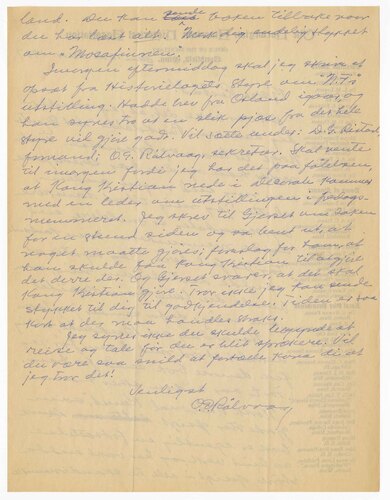 land. Du kan sende boken tilbake naar
du har læst alt.
om "Mosafinnen".
Imorgen eftermiddag skal jeg skrive et
oprop fra Historielagets Styre om
utstilling. Hadde brev fra Osland igaar, og
han synes fra at en slik pjæs fra det hele
styre vil gjøre godt. Vil sætte under: D. G. Ristad
formand; O. E. Rølvaag, sekretær. Skal vente
til imorgen fordi jeg har det paa følelsen,
at Kong Kristian rede i Decorah kommer
med en leder om utstillingen i
nummeret. Jeg skrev til Gjerset om saken
for en stund siden og sa bent ut, at
noget maatte gjøres; foreslog for ham, at
han skulde faa Kong Kristian til at gjøre
det derre der. Og Gjerset svarer, at det skal
Kong Kristian gjøre. Tror ikke jeg kan sende
stykket til dig til godkjendelse. Tiden er saa
kort at der maa handles straks.
Jeg synes ikke du skulde begynde at
reise og tale før du er blit sprækere. Vil
du være saa snild at fortælle Kora di at
jeg tror det!
Venligst
O E Rølvaag